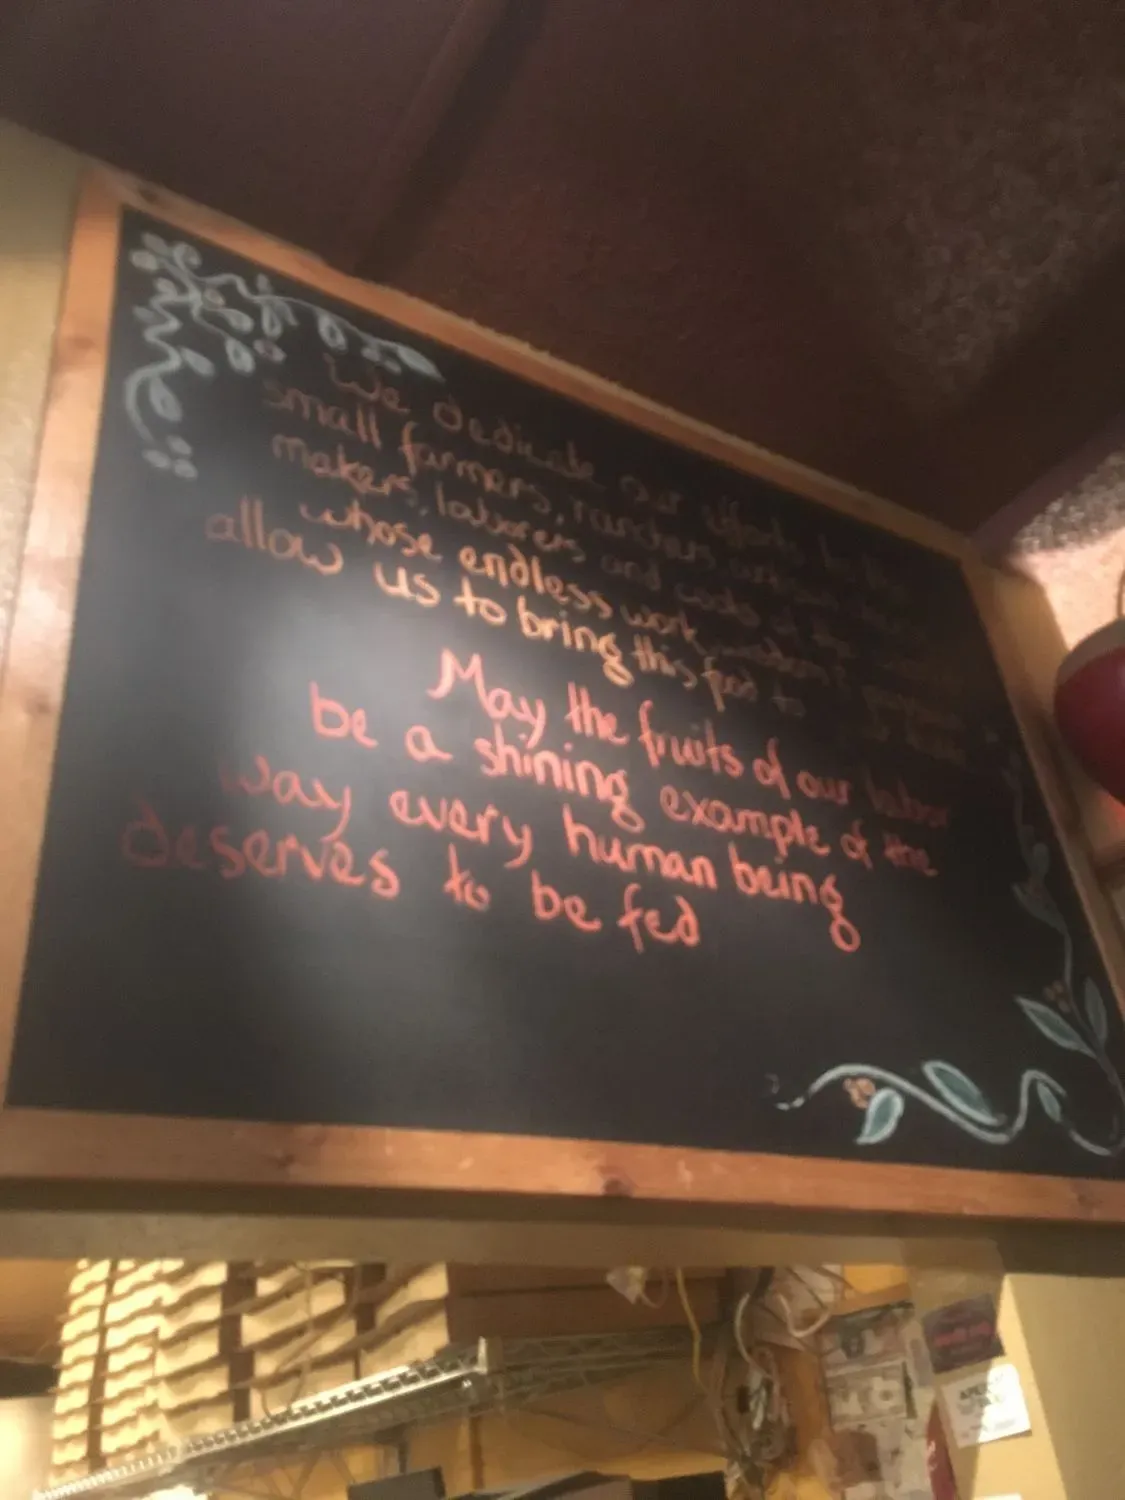 We dedicate our efforts to the
small farmers, ranchers, artisan
makers, laborers and cooks of the
whose endless work, wisdom &
allow us to bring this food to
May the fruits of our labor
be a shining example of the
way every human being
deserves to be fed